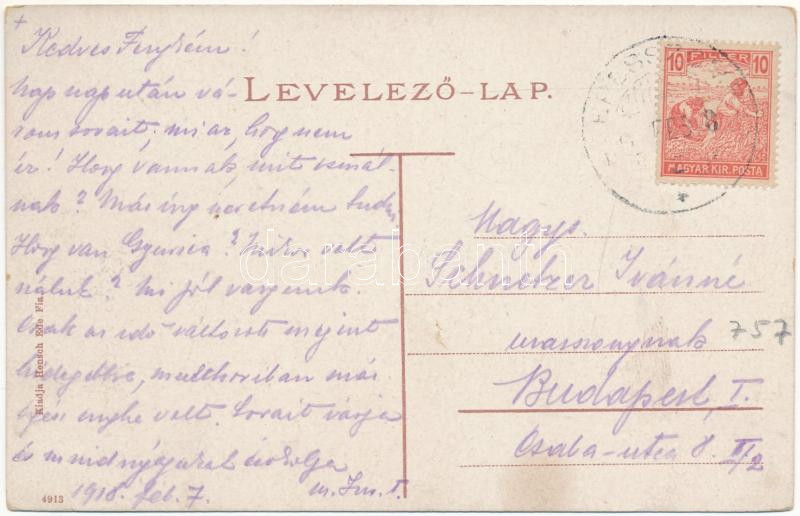 Kedves Ferykém!
LEVELEZŐ-LAP.
10 FILLÉR 10
MAGYAR KIR. POSTA
nap nap után vá-
rom sorait. mi az, hogy nem
ír! Hogy vannak, mit csinál-
nak? Már úgy szeretném tudni
Hogy van Gyurica? Mikor volt
náluk? Mi jól vagyunk.
Csak az idő változott megint
hidegebbre, multkoriban már
egész enyhe volt. Sorait várja
és mindnyájukat csókolja
1918. feb. 7.
Nagys.
Schnetzer Ivánné
urasszonynak
Budapest, I.
Csaba-utca 8. II/2
757
Kiadja Hensch Ede Fia
4913
darabanth